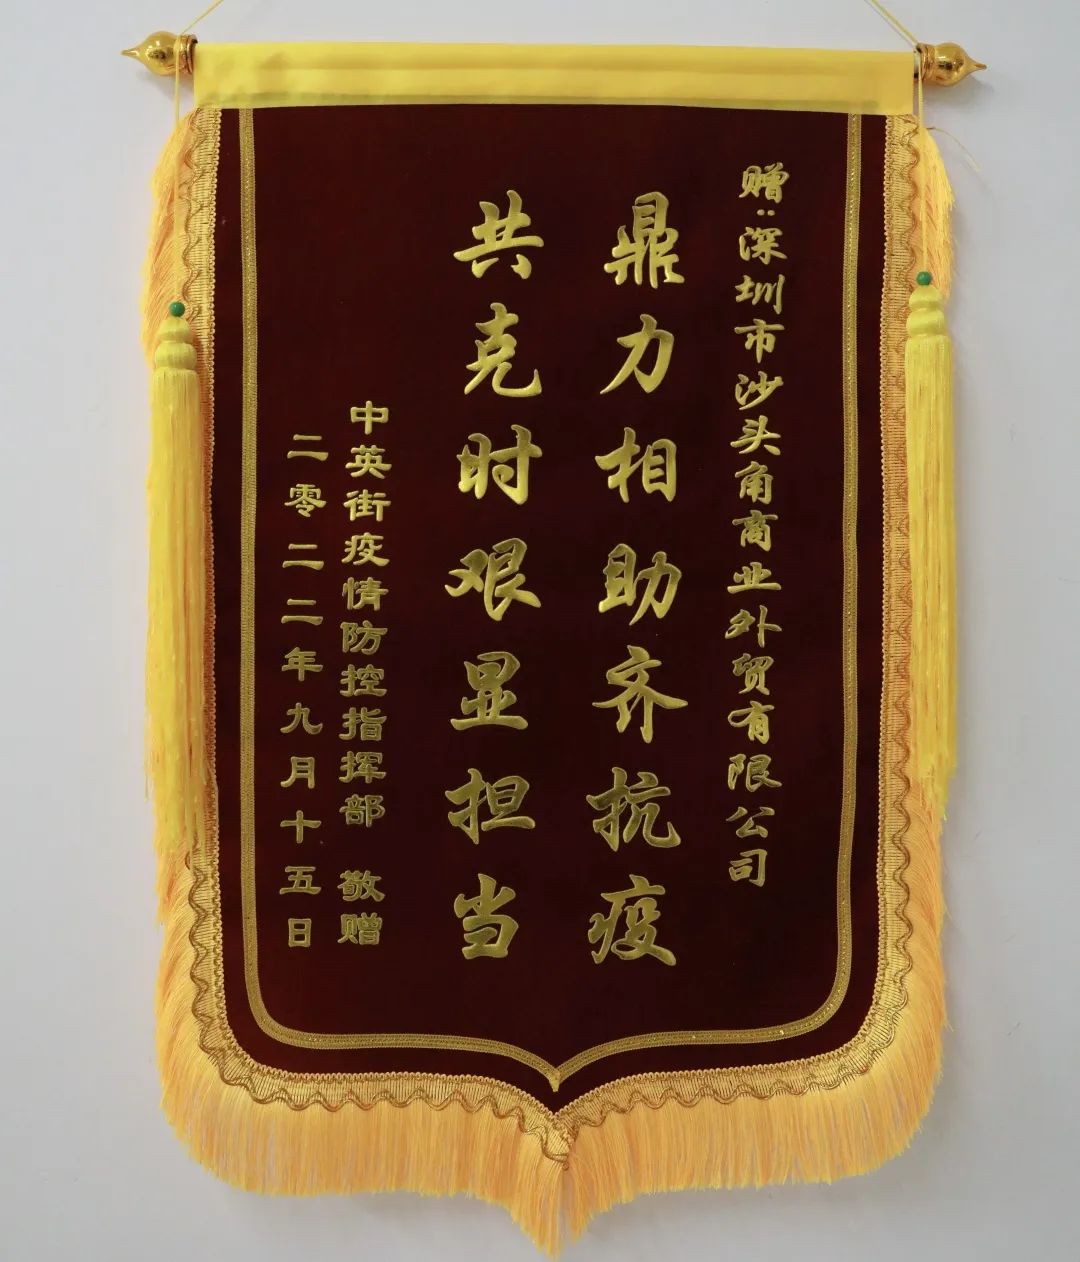 赠:深圳市沙头角商业外贸有限公司
鼎力相助齐抗疫
共克时艰显担当
中英街疫情防控指挥部 敬赠
二零二二年九月十五日